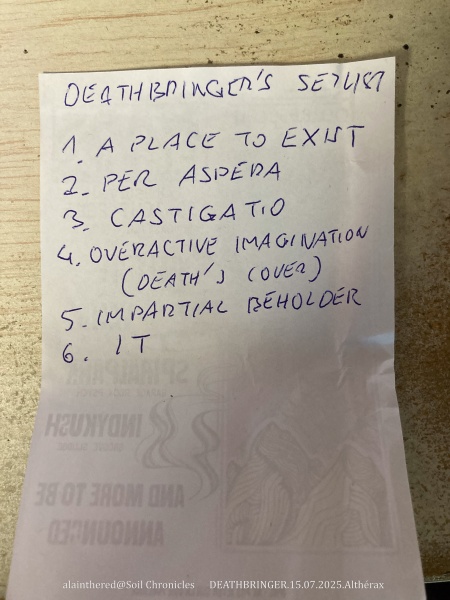 DEATHBRINGER'S SETLIST
1. A PLACE TO EXIST
2. PER ASPERA
3. CASTIGATIO
4. OVERACTIVE IMAGINATION
(DEATH'S COVER)
5. IMPARTIAL BEHOLDER
6. IT
SPIRALPARK
INDYKUSH
AND MORE TO BE
ANNOUNCED
alainthered@Soil Chronicles DEATHBRINGER.15.07.2025.Althérax